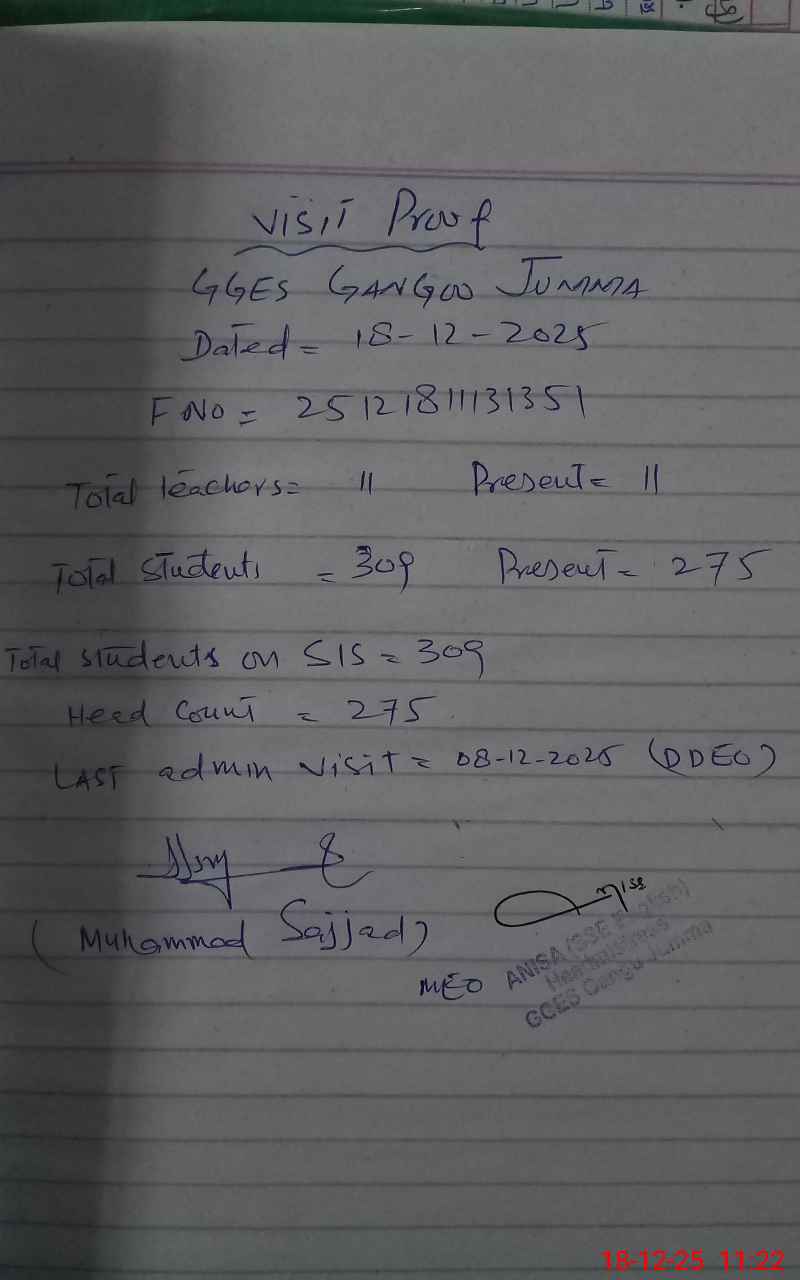 Visit Proof
GGES GANGOO JUMMA
Dated = 18-12-2025
F NO = 25121811131351
Total teachers = 11 Present = 11
Total students = 309 Present = 275
Total students on SIS = 309
Head Count = 275
LAST admin visit = 08-12-2025 (DDEO)
(Muhammad Sajjad)
MEO
ANISA (SSE English)
Headmistress
GGES Gangu Jumma
18-12-25 11:22